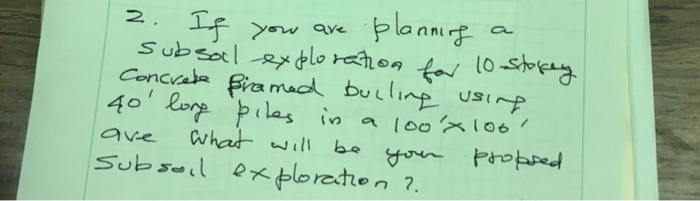 2. If you are planning a
subsoil exploration for 10-storey
Concrete framed builing using
40' long piles in a 100'x100'
are what will be your propsed
subsoil exploration?.